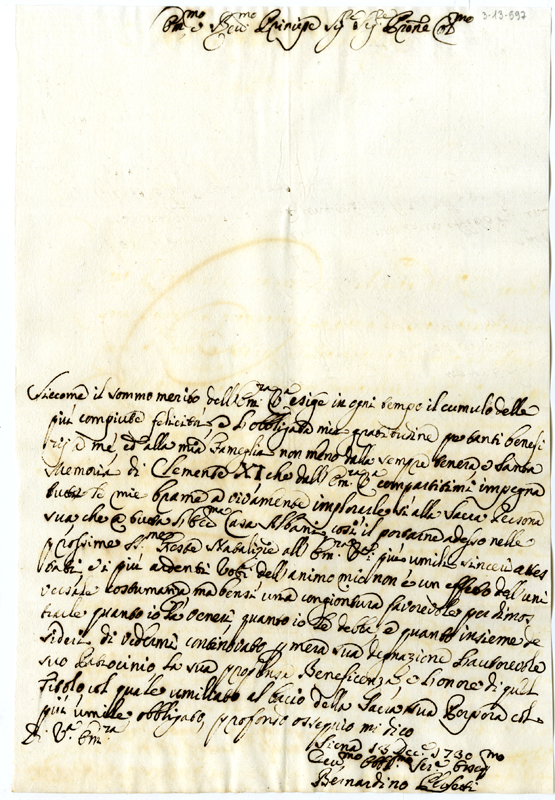 3-13-597
Em.mo e Rev.mo Principe Sig.re Sig.re Prone Col.mo
Siccome il sommo merito dell'Em.ra V.a esige in ogni tempo il cumulo delle
più compiute felicità, e l'obbligata mia gratitudine per tanti benefi
zij e me, ed alla mia Fameglia non meno dalla sempre venera e Santa
Memoria di Clemente XI che dall'Em.ra V.a compartitimi impegna
tutte le mie brame a vivamente implorarle sì alla Sacra Persona
sua che a tutta l'Ecc.ma Casa Albani, così il portarne adesso nelle
prossime SS.me Feste Natalizie all'Em.ra V.a i più umili sinceri attes
tati, e i più ardenti voti dell'animo mio non è un effetto dell'uni
versale costumanza ma bensì una congiontura favorevole per dimos
trarle quanto io la veneri quanto io le debba, e quanto insieme de
sideri di vedermi continovato p mera sua degnazione l'autorevole
suo Patrocinio la sua propensa Beneficenza, e l'onore di quel
Titolo col quale umiliato al bacio della Sacra sua Porpora col
più umile obbligato, e profonso ossequio mi dico
Di V.a Em.ra
Siena 13 Dec.e 1730
Dev.mo Obb.mo Ser.e Osseq.mo
Bernardino